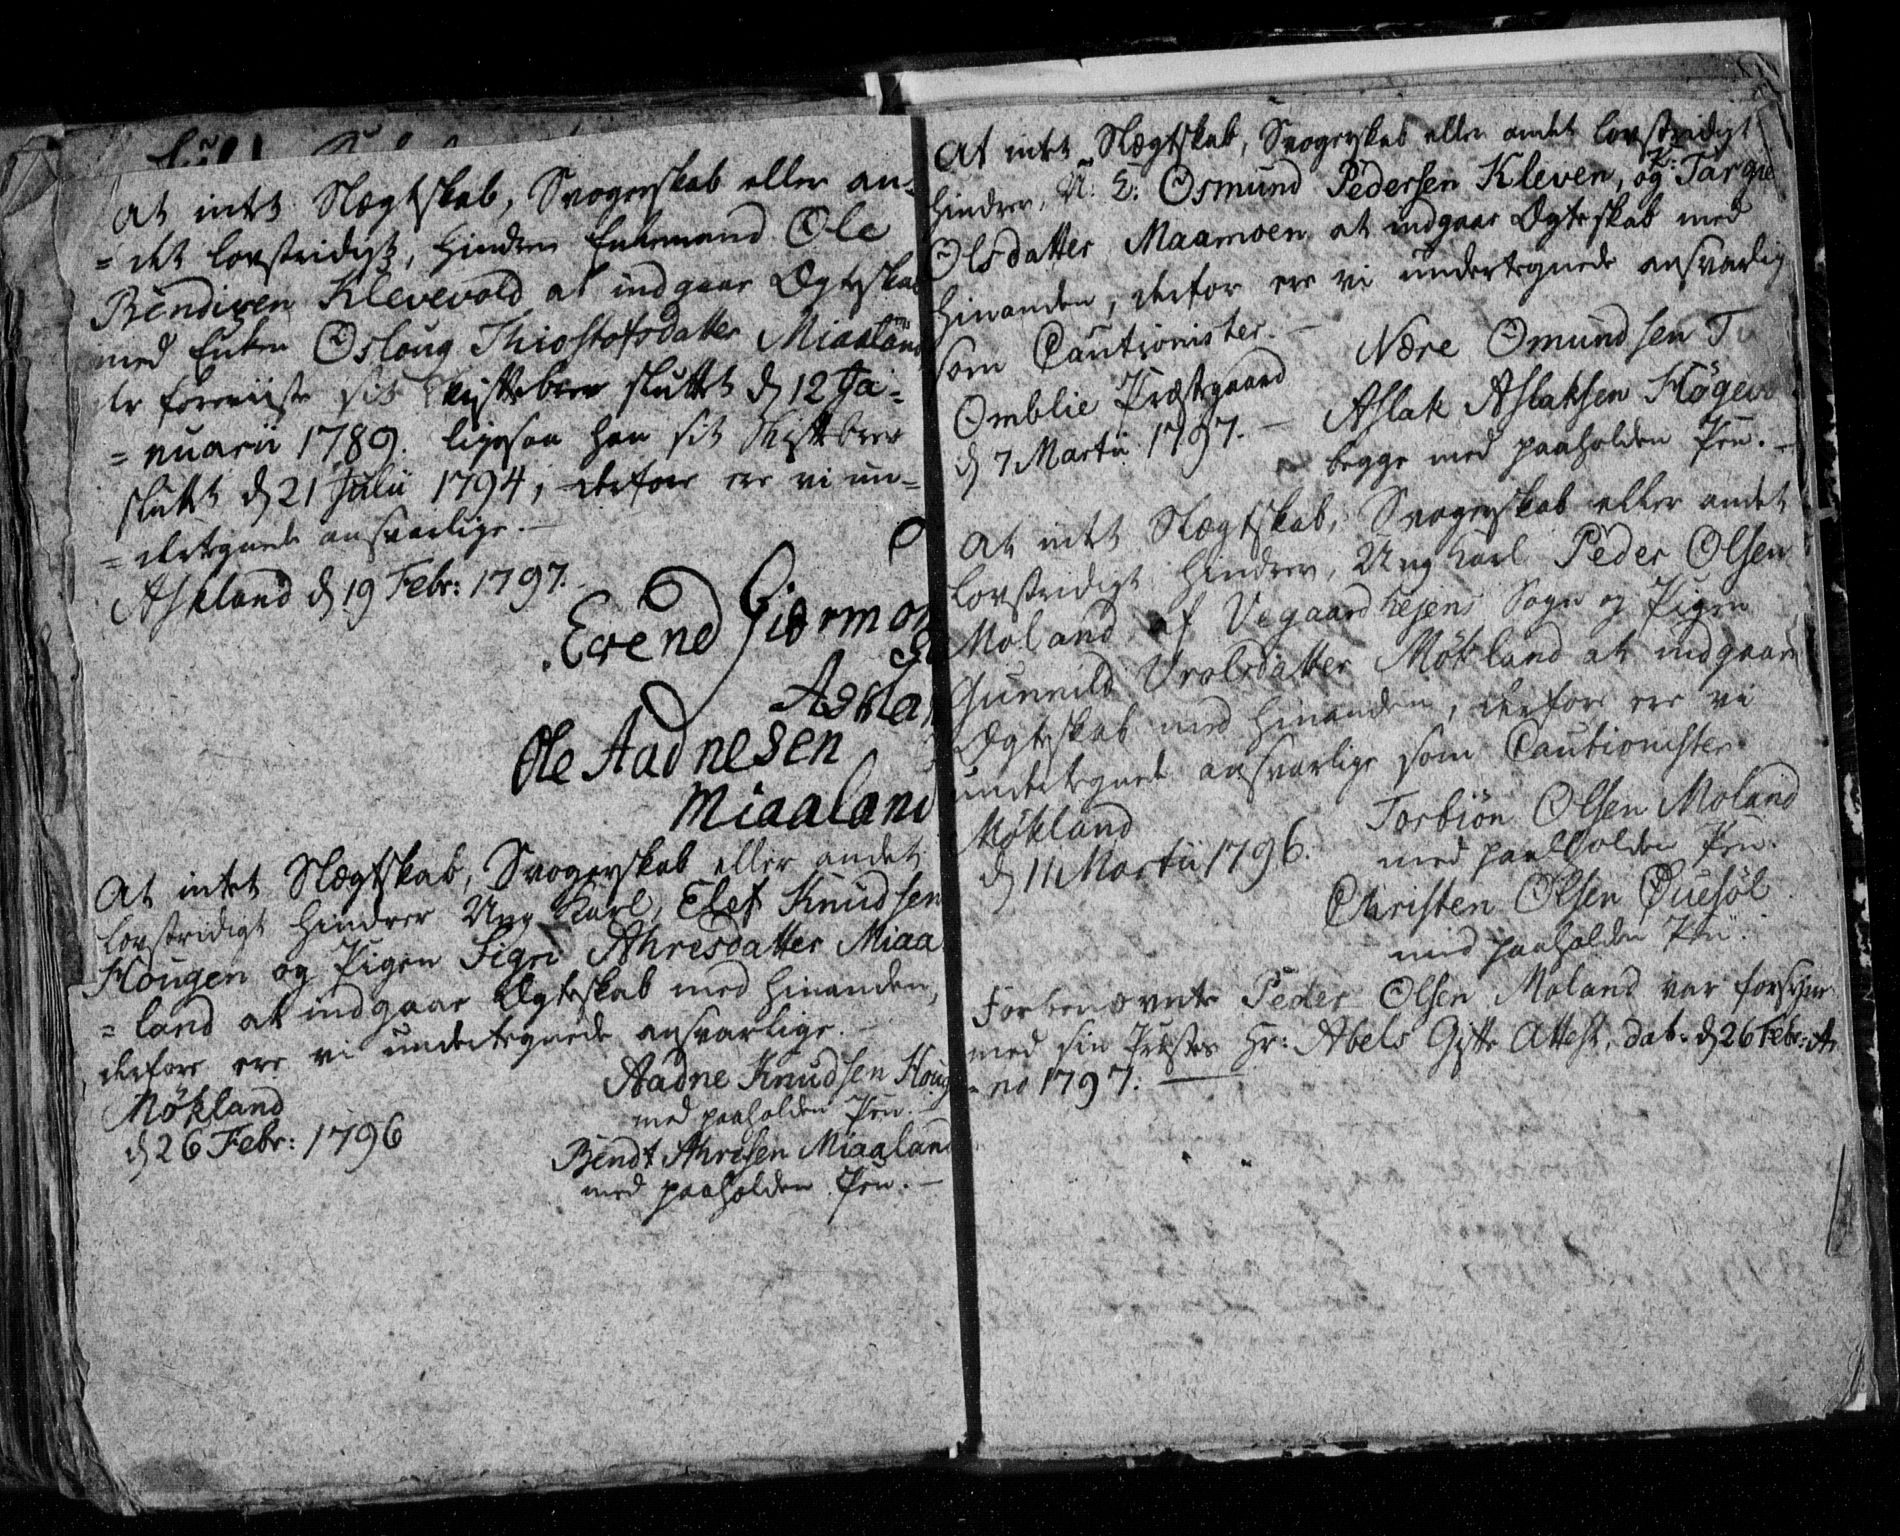 At intet Slægtskab, Svogerskab eller an-
= det lovstridigt, hindrer Enkemand Ole
Bendixen Klevevold at indgaae Ægteskab
med Enken Osloug Thiostofsdatter Miaaland
der foreviiste sit Skiftebrev sluttet d 12 Ja-
= nuarii 1789. ligesaa han sit Skiftebrev
sluttet d 21 Julii 1794, derfore ere vi un-
= dertegnede ansvarlige.
Askland d 19 Febr: 1797.
Evend Giermon
Askla
Ole Aadnesen
Miaaland
At intet Slægtskab, Svogerskab eller andet
lovstridigt hindrer Ung Karl, Elef Knudsen
Hougen og Pigen Sigri Ahresdatter Miaa
= land at indgaae Ægteskab med hinanden,
derfore ere vi undertegnede ansvarlige.
Aadne Knudsen Houg
med paaholden Pen.
Møkland
d 26 Febr: 1796
Bendt Ahresen Miaaland
med paaholden Pen.
At intet Slægtskab, Svogerskab eller andet lovstridigt
hindrer, U: E: Osmund Pedersen Kleven, og P: Targie
Olsdatter Maamoen at indgaae Ægteskab med
hinanden, derfor ere vi undertegnede ansvarlig
som Cautionister.
Nære Omundsen
Omblie Præstgaard
d 7 Martii 1797.
Aslak Aslaksen Høgevo
begge med paaholden Pen.
At intet Slægtskab, Svogerskab eller andet
lovstridigt hindrer, Ung Karl Peder Olsen
Moland af Vegaardshejens Sogn og Pigen
Gunvild Vrolsdatter Møkland at indgaae
Ægteskab med hinanden, derfore ere vi
undertegnede ansvarlige som Cautionister.
Møkland
d 11 Martii 1796.
Torbiøn Olsen Moland
med paaholden Pen.
Christen Olsen Øuesøl
med paaholden Pen.
Forbenævnte Peder Olsen Moland var forsynt
med sin Præstes Hr: Abels Gifte Attest, dat: d 26 Febr: A-
= no 1797.